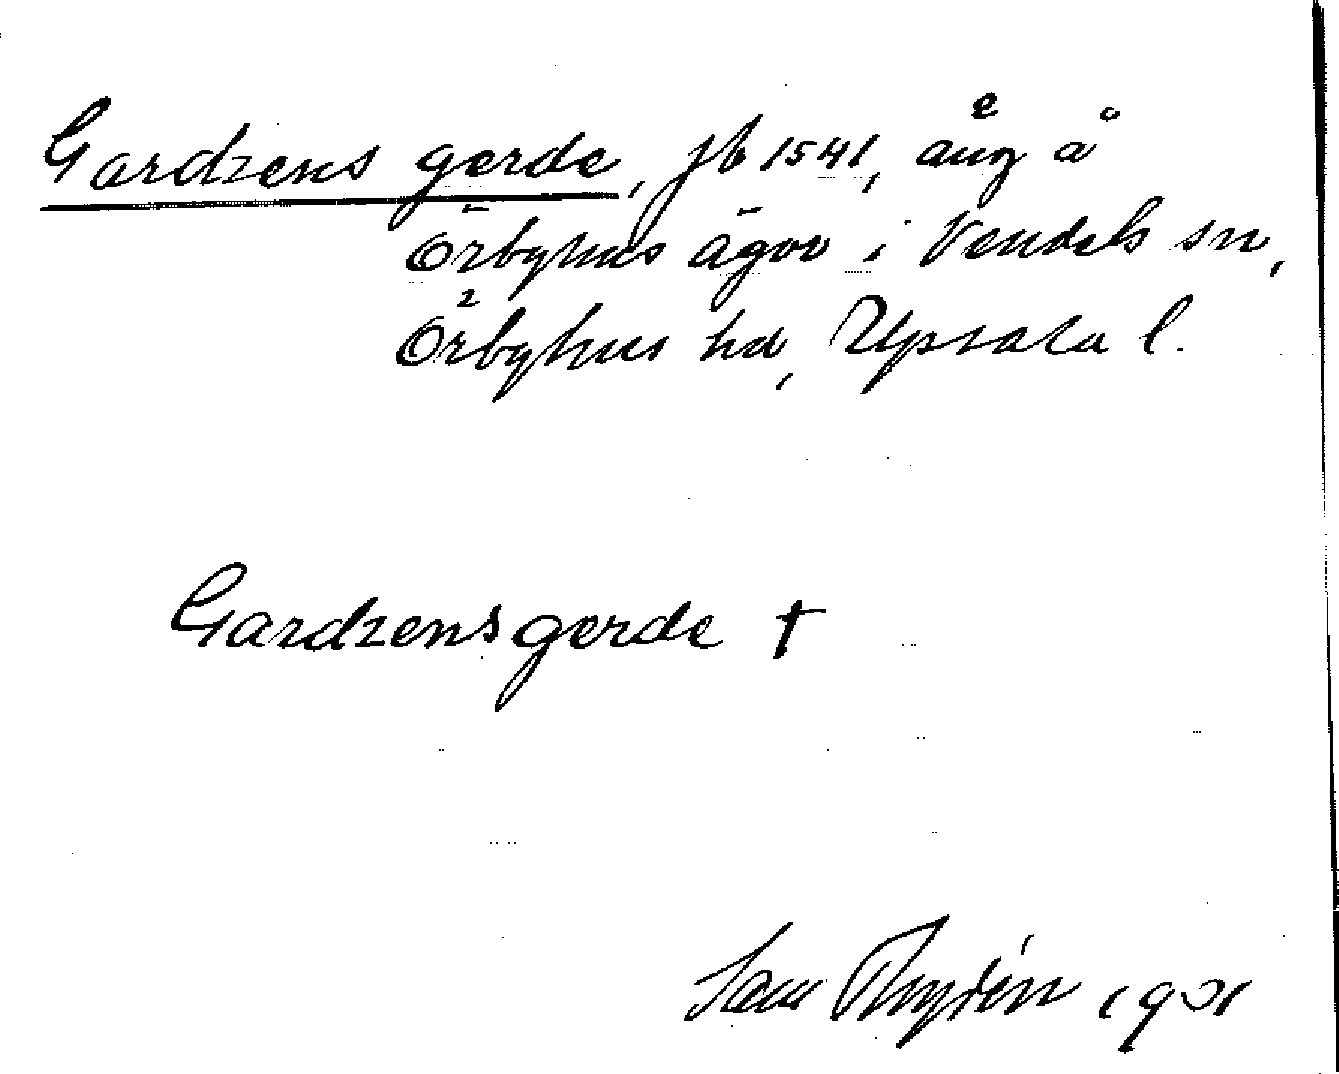 Gardzens gerde, jb 1541, äng å
Örbyhus ägor i Vendels sn,
Örbyhus hd, Upsala l.
Gardzensgerde †
1901